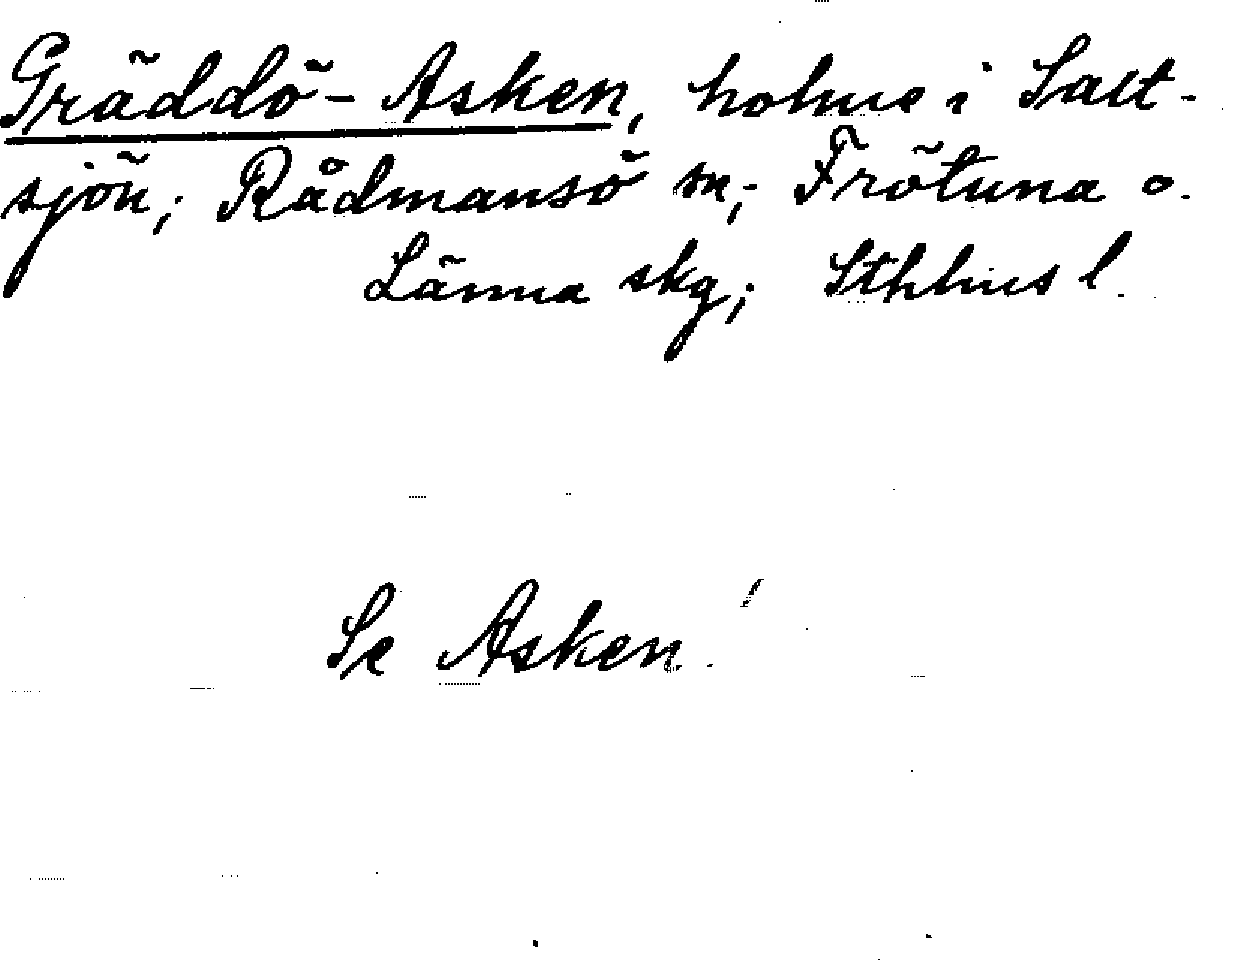 Gräddö-Asken, holme i Salt-
sjön; Rådmansö sn; Frötuna o.
Länna skg; Sthlms l.
Se Asken!